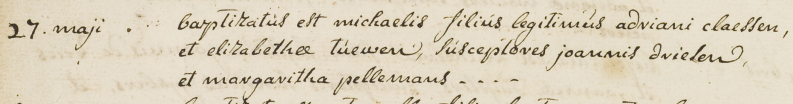 27. maji . baptizatus est michaelis filius legitimus adriani claessen,
et elizabethæ tuewen, susceptores joannis driesen,
et margaritha pellemans - - - -